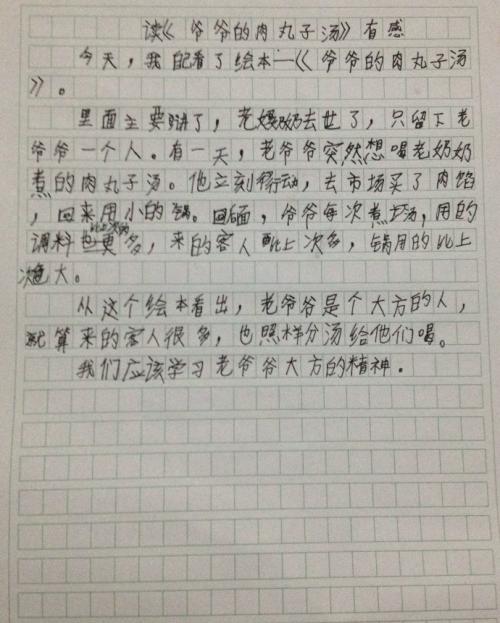 读《爷爷的肉丸子汤》有感
今天，我配看了绘本—《爷爷的肉丸子汤
》。
里面主要讲了，老奶奶去世了，只留下老
爷爷一个人。有一天，老爷爷突然想喝老奶奶
煮的肉丸子汤。他立刻行动，去市场买了肉馅
，回来用小的锅。后面，爷爷每次煮汤，用的
调料比上次的更多，来的客人比上次多，锅用的比上
次也大。
从这个绘本看出，老爷爷是个大方的人，
就算来的客人很多，也照样分汤给他们喝。
我们应该学习老爷爷大方的精神。